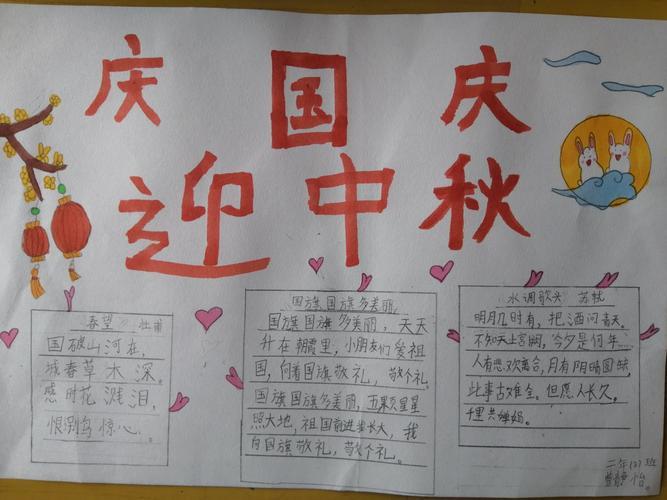 庆 国 庆
迎 中 秋
春望 杜甫
国破山河在，
城春草木深。
感时花溅泪，
恨别鸟惊心。
国旗国旗多美丽
国旗国旗多美丽，天天
升在朝霞里，小朋友们爱祖
国，向着国旗敬礼，敬个礼。
国旗国旗多美丽，五颗星星
照大地，祖国前进我长大，我
向国旗敬礼，敬个礼。
水调歌头 苏轼
明月几时有，把酒问青天。
不知天上宫阙，今夕是何年...
人有悲欢离合，月有阴晴圆缺，
此事古难全。但愿人长久。
千里共婵娟。
二年(3)班
静怡